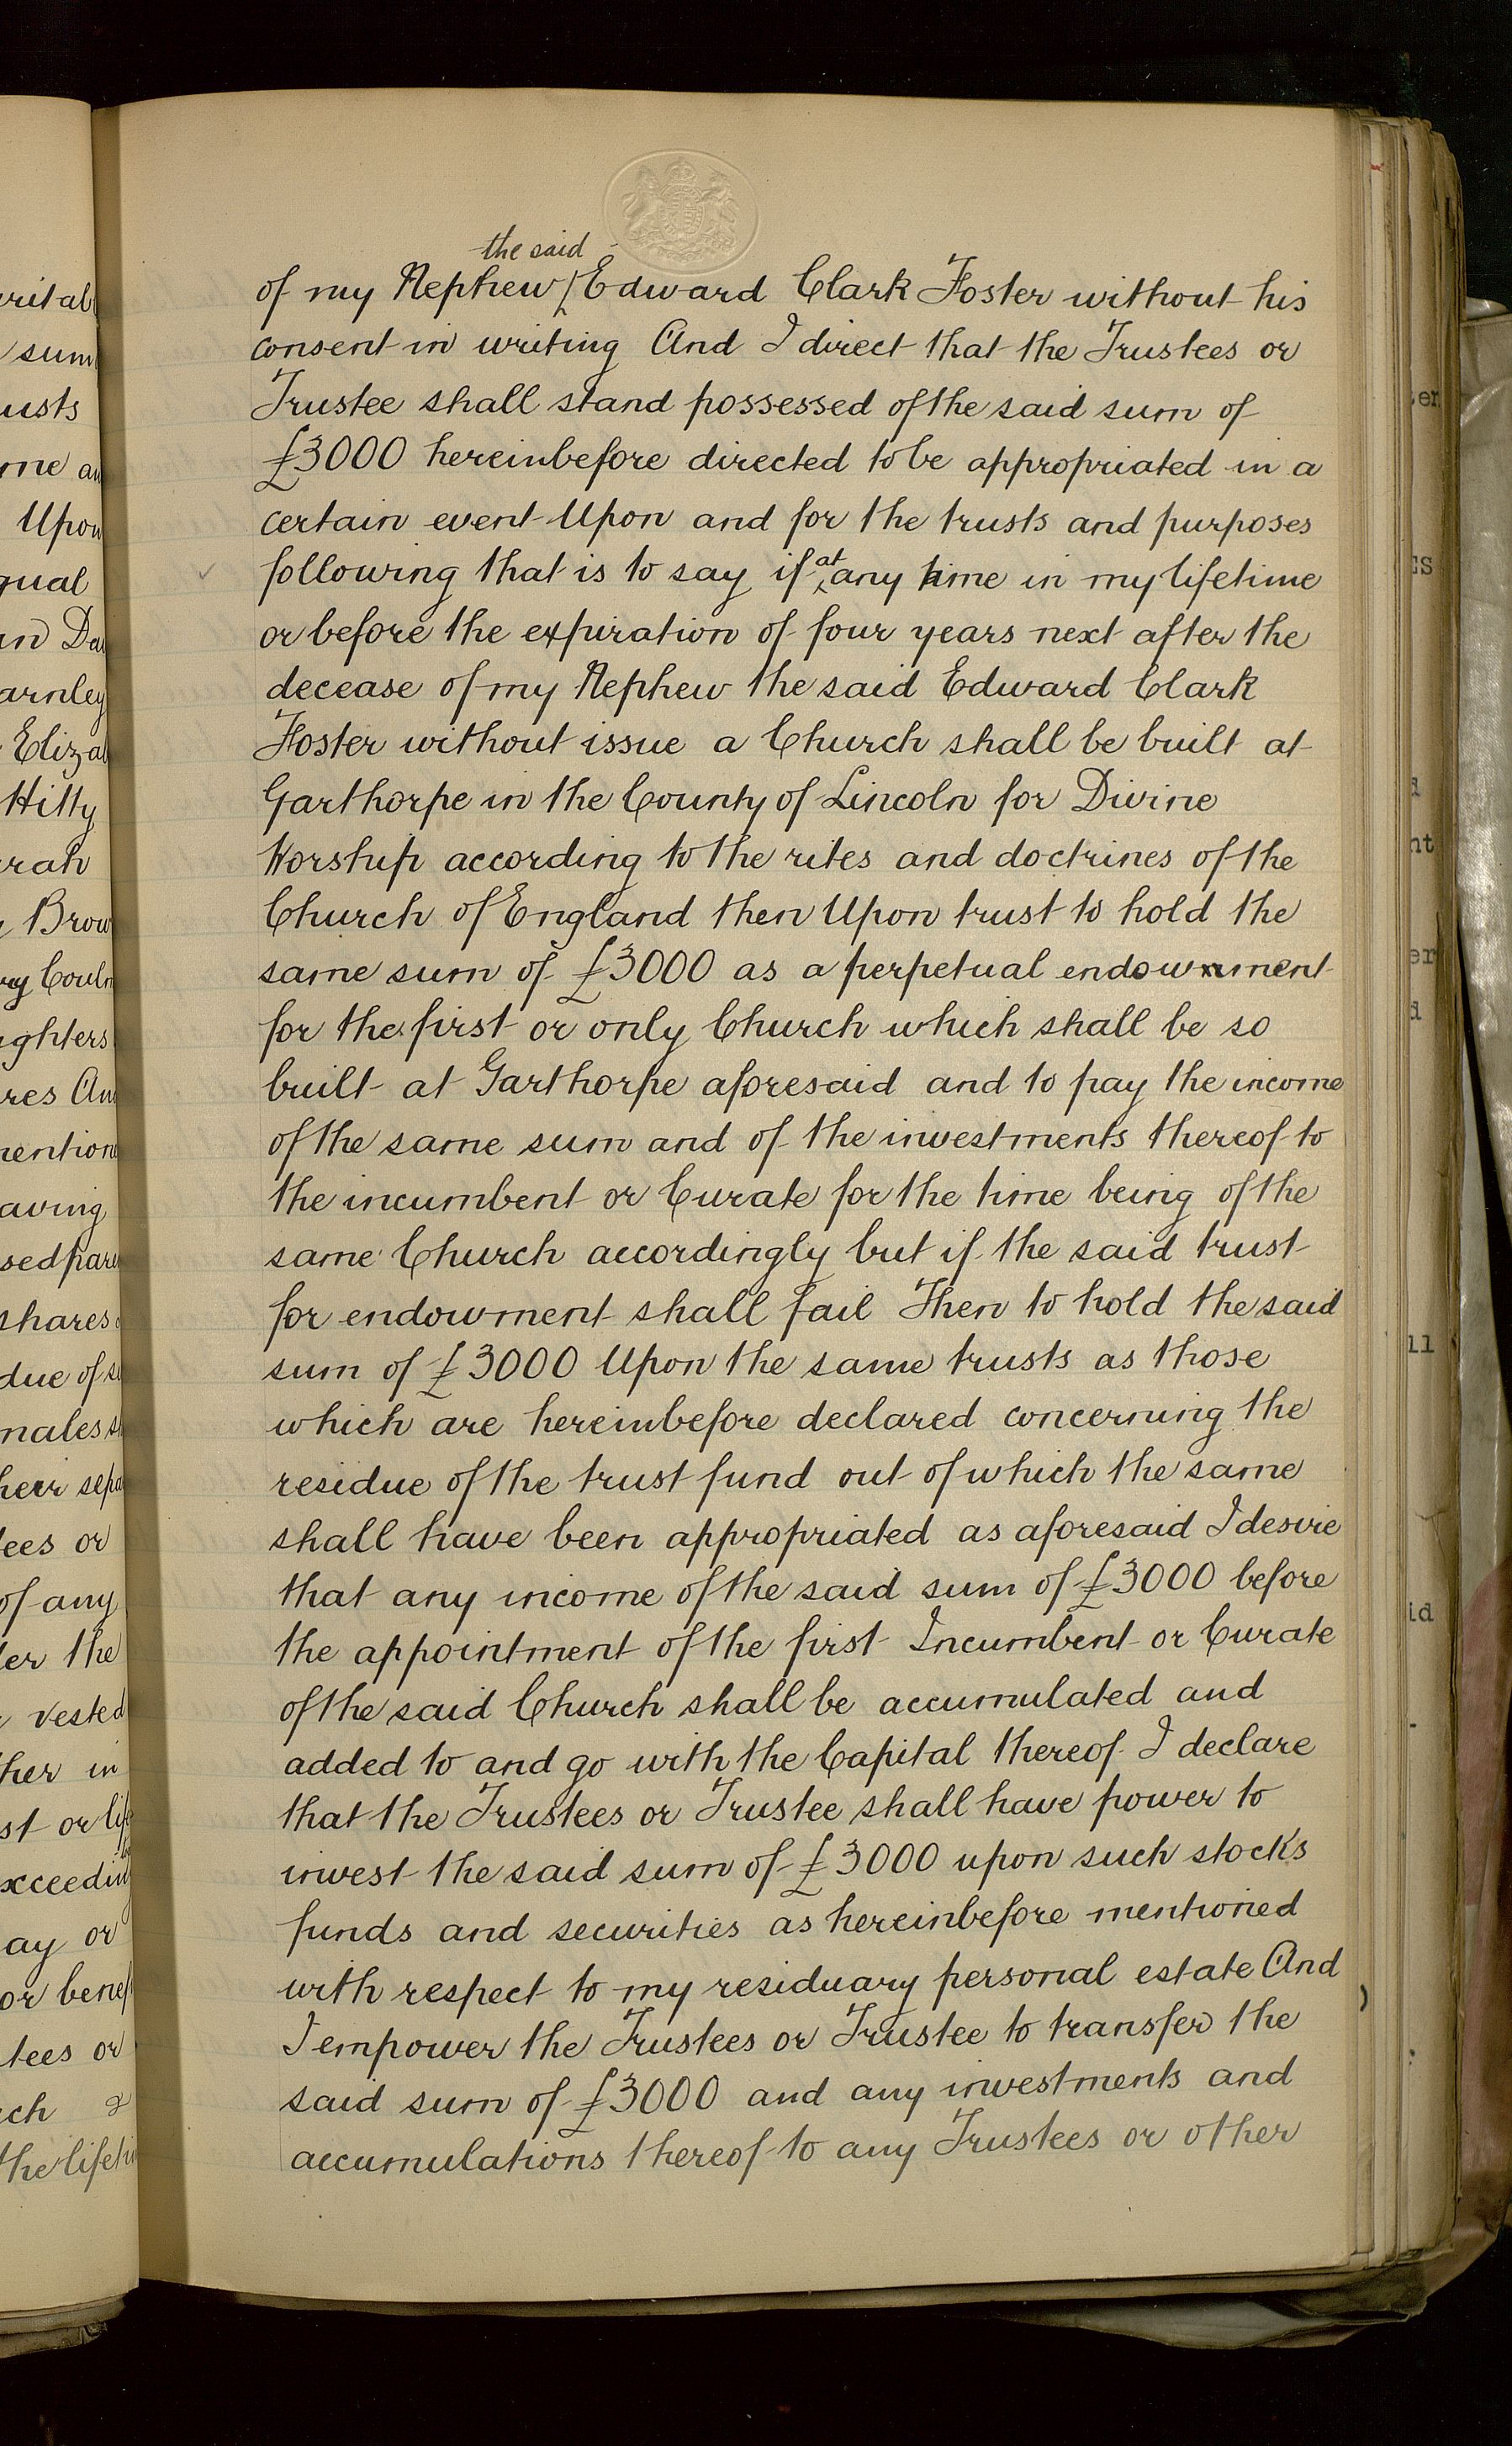 the said
of my Nephew Edward Clark Foster without his
consent in writing And I direct that the Trustees or
Trustee shall stand possessed of the said sum of
£3000 hereinbefore directed to be appropriated in a
certain event Upon and for the trusts and purposes
following that is to say if at any time in my lifetime
or before the expiration of four years next after the
decease of my Nephew the said Edward Clark
Foster without issue a Church shall be built at
Garthorpe in the County of Lincoln for Divine
Worship according to the rites and doctrines of the
Church of England then Upon trust to hold the
same sum of £3000 as a perpetual endowment
for the first or only Church which shall be so
built at Garthorpe aforesaid and to pay the income
of the same sum and of the investments thereof to
the incumbent or Curate for the time being of the
same Church accordingly but if the said trust
for endowment shall fail Then to hold the said
sum of £3000 Upon the same trusts as those
which are hereinbefore declared concerning the
residue of the trust fund out of which the same
shall have been appropriated as aforesaid I desire
that any income of the said sum of £3000 before
the appointment of the first Incumbent or Curate
of the said Church shall be accumulated and
added to and go with the Capital thereof I declare
that the Trustees or Trustee shall have power to
invest the said sum of £3000 upon such stocks
funds and securities as hereinbefore mentioned
with respect to my residuary personal estate And
I empower the Trustees or Trustee to transfer the
said sum of £3000 and any investments and
accumulations thereof to any Trustees or other